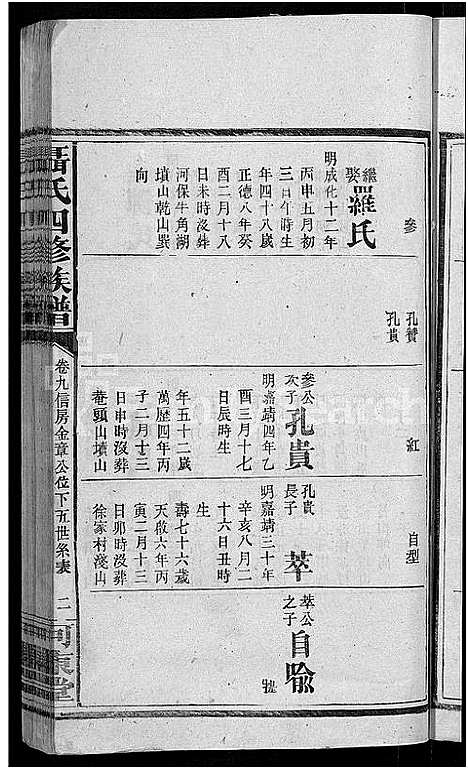 參
繼娶羅氏
明成化十二年
丙申五月初
三日午時生
年四十八歲
正德八年癸
酉二月十八
日未時沒葬
河保牛角湖
墳山乾山巽
向
孔贊
孔貴
參公次子孔貴
明嘉靖四年乙
酉三月十七
日辰時生
年五十二歲
萬歷四年丙
子二月十三
日申時沒葬
菴頭山墳山
紅
孔貴長子萃
明嘉靖三十年
辛亥八月二
十六日丑時
生
壽七十六歲
天啟六年丙
寅二月十三
日卯時沒葬
徐家村淺山
自型
萃公之子自喩
聶氏四修族譜
卷九信房金章公位下五世系表
二
河東堂